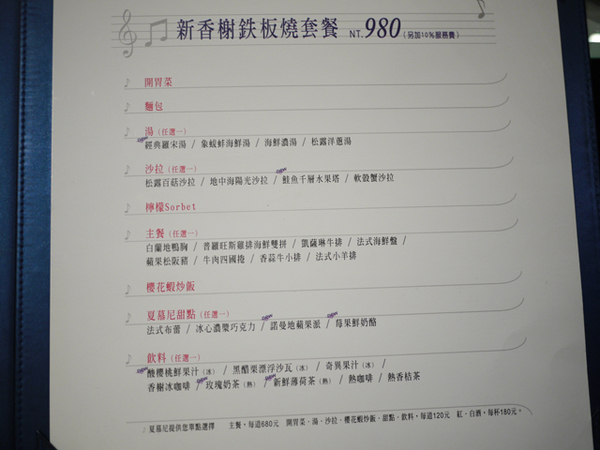 新香榭鉄板燒套餐 NT.980(另加10%服務費)
開胃菜
麵包
湯(任選一)
經典羅宋湯 / 象蚊蚌海鮮湯 / 海鮮濃湯 / 松露洋蔥湯
沙拉(任選一)
松露百菇沙拉 / 地中海陽光沙拉 / 鮭魚千層水果塔 / 軟殼蟹沙拉
檸檬Sorbet
主餐(任選一)
白蘭地鴨胸 / 普羅旺斯雞排海鮮雙拼 / 凱薩琳牛排 / 法式海鮮盤 /
蘋果松阪豬 / 牛肉四國捲 / 香蒜牛小排 / 法式小羊排
櫻花蝦炒飯
夏慕尼甜點(任選一)
法式布蕾 / 冰心濃璽巧克力 / 諾曼地蘋果派 / 莓果鮮奶酪
飲料(任選一)
酸櫻桃鮮果汁(冰) / 黑醋栗漂浮沙瓦(冰) / 奇異果汁(冰) /
香榭冰咖啡 / 玫瑰奶茶(熱) / 新鮮薄荷茶(熱) / 熱咖啡 / 熱香桔茶
夏慕尼提供您單點選擇 主餐,每道680元 開胃菜、湯、沙拉、櫻花蝦炒飯、甜點、飲料,每道120元 紅、白酒,每杯180元。